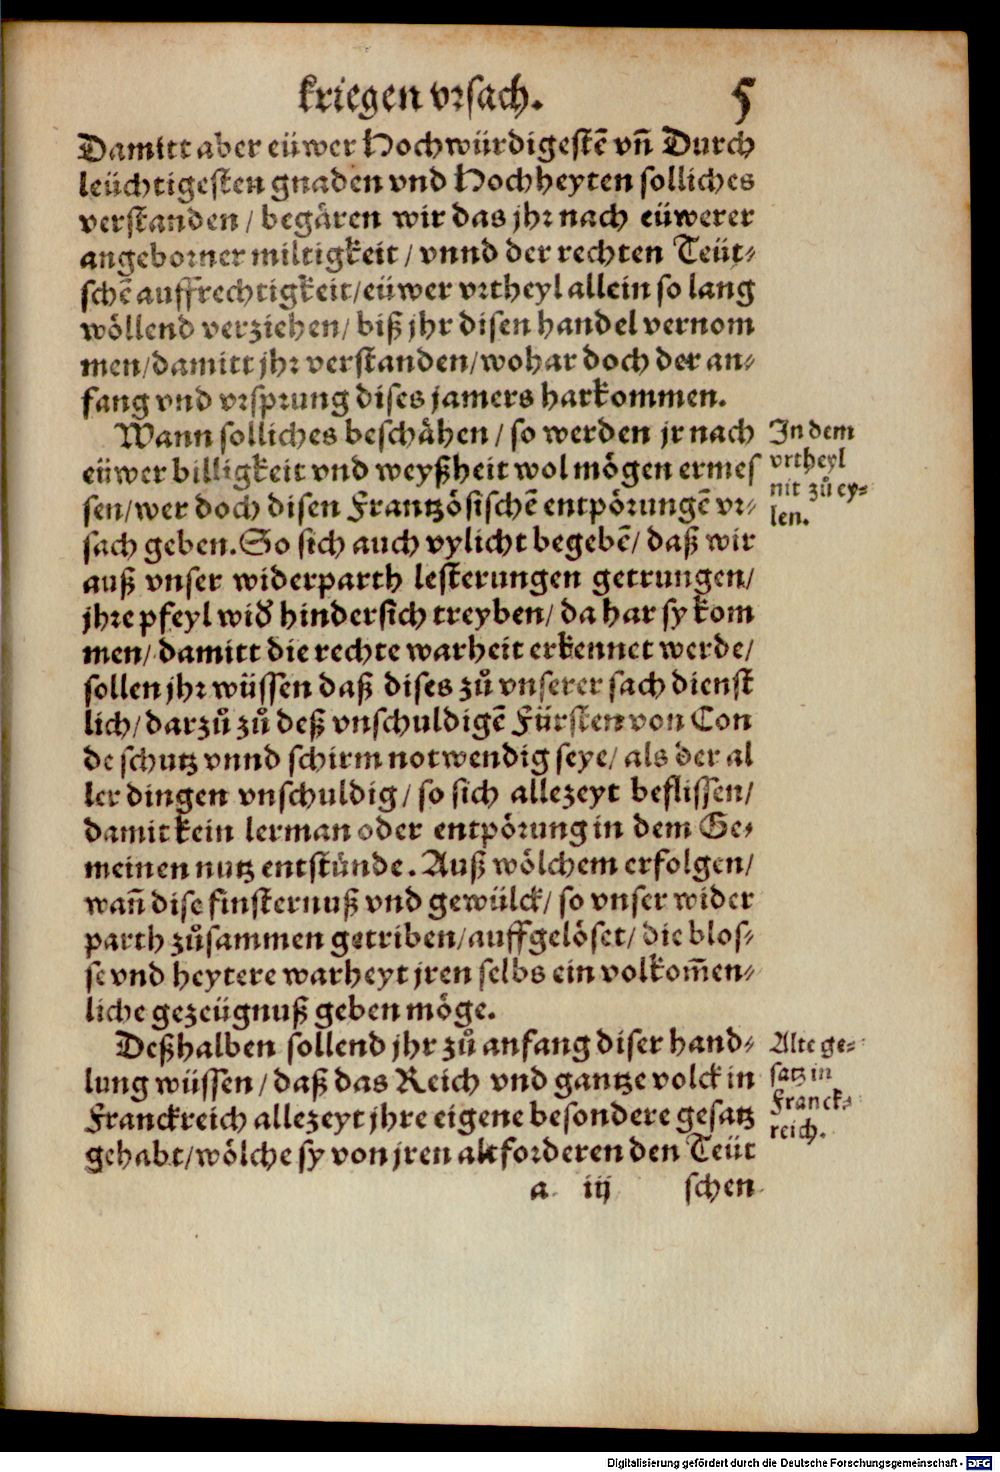 kriegen vrsach. 5
Damitt aber eüwer Hochwürdigestē vn̄ Durch
leüchtigesten gnaden vnd Hochheyten solliches
verstanden / begären wir das jhr nach eüwerer
angeborner miltigkeit / vnnd der rechten Teüt-
schē auffrechtigkeit/eüwer vrtheyl allein so lang
wöllend verziehen/ biß jhr disen handel vernom
men/damitt jhr verstanden/wohar doch der an-
fang vnd vrsprung dises jamers harkommen.
Wann solliches beschähen / so werden jr nach
eüwer billigkeit vnd weyßheit wol mögen ermes
sen/wer doch disen Frantzösischē entpörungē vr-
sach geben. So sich auch vylicht begebē/ daß wir
auß vnser widerparth lesterungen getrungen/
jhre pfeyl wid̕ hindersich treyben/ da har sy kom
men/ damitt die rechte warheit erkennet werde/
sollen jhr wüssen daß dises zů vnserer sach dienst
lich/ darzů zů deß vnschuldigē Fürsten von Con
de schutz vnnd schirm notwendig seye/ als der al
ler dingen vnschuldig/ so sich allezeyt beflissen/
damit kein lerman oder entpörung in dem Ge-
meinen nutz entstünde. Auß wölchem erfolgen/
wan̄ dise finsternuß vnd gewülck/ so vnser wider
parth zůsammen getriben/auffgelöset/ die blos-
se vnd heytere warheyt jren selbs ein volkom̄en-
liche gezeügnuß geben möge.
Deßhalben sollend jhr zů anfang diser hand-
lung wüssen/ daß das Reich vnd gantze volck in
Franckreich allezeyt jhre eigene besondere gesatz
gehabt/wölche sy von jren altforderen den Teüt
a iij schen
In dem
vrtheyl
nit zů ey-
len.
Alte ge-
satz in
Franck-
reich.
Digitalisierung gefördert durch die Deutsche Forschungsgemeinschaft - DFG